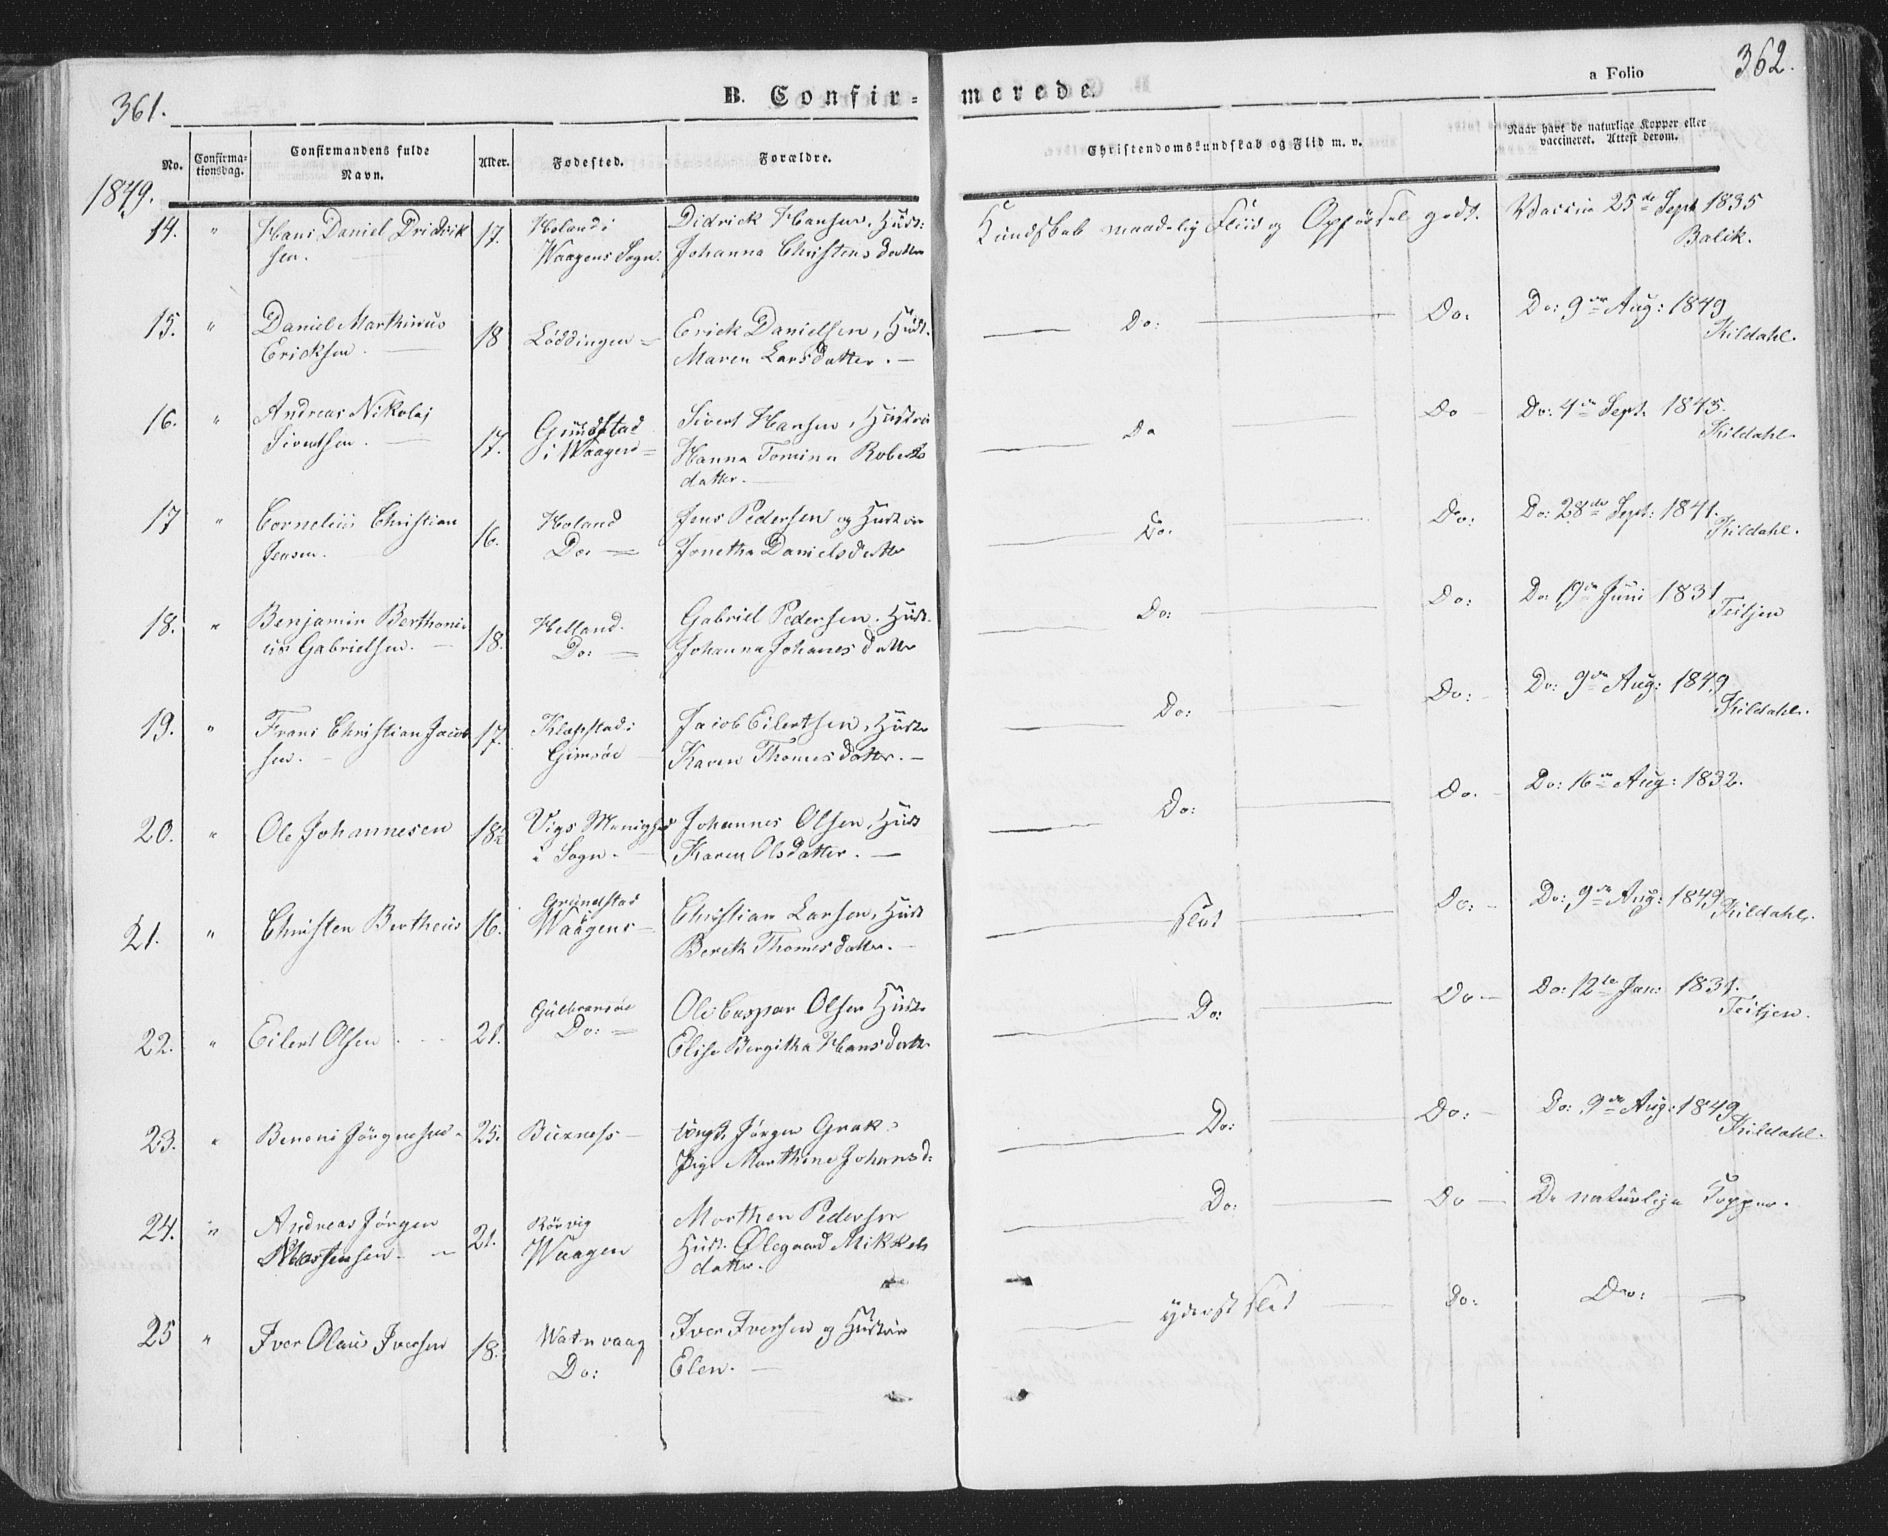 361.
B. Confir=
merede.
a Folio
362.
No.
Confirma-
tionsdag.
Confirmandens fulde
Navn.
Alder.
Fødested.
Forældre.
Christendomskundskab og Flid m. v.
Naar havt de naturlige Kopper eller
vaccineret. Attest derom.
1849.
14. " Hans Daniel Dridrik 17. Holand i Didrick Hansen, Hust: Kundskab maadelig Fliid og Opførsel godt. Vaccin 25de Sept 1835
sen. Waagens Sogn. Johanna Christens datter Balik.
15. " Daniel Marthinus 18 Løddingen Erick Danielsen, Hust. Do: Do. Do: 9de Aug: 1849
Ericksen. Maren Larsdatter. Kildahl.
16. " Andreas Nikolaj 17. Grundstad Sivert Hansen, Hustru Do Do Do: 4de Sept. 1845.
Sivertsen. i Waagens Hanna Tomina Roberts Kildahl.
datter.
17 " Cornelius Christian 16. Holand Jens Pedersen og Hustru Do. Do: Do: 28de Sept: 1841.
Jensen. Do. Jonetha Danielsdatter Kildahl.
18. " Benjamin Berthoni- 18. Helland. Gabriel Pedersen. Hust. Do: Do: Do 19de Juni 1831
us Gabrielsen. Do: Johanna Johanes datter Teitjen
19. " Frans Christian Jacob 17. Klæpstad i Jacob Eilertsen, Hust. Do: Do: Do: 9de Aug: 1849
sen. Gimsøe Karen Thomesdatter. Kildahl.
20. " Ole Johannesen 18½ Vigs Menighed Johannes Olsen, Hust Do: Do. Do: 16de Aug: 1832.
i Sogn. Karen Olsdatter.
21. " Christen Bertheus 16. Grundstad Christian Larsen, Hust slet Do: Do: 9de Aug: 1849
Waagens Berith Thomesdatter. Kildahl.
22. " Eilert Olsen 21. Gulbransøe Ole Caspar Olsen Hust. Do: Do Do: 12te Jan: 1831.
Do: Elise Bergitha Hansdatt. Teitjen.
23. " Benoni Jørgensen 25. Buxness Ungk. Jørgen Grak. Do: Do: Do: 9de Aug: 1849
Pige Marthine Johansd: Kildahl.
24. " Andreas Jørgen 21. Rørvig Morthen Pedersen Do: Do De naturlige Kopper.
Mortensen. Waagen Hust. Olegaard Mikkels
datter.
25 " Iver Olaus Iversen 18. Watnvaag Iver Iversen og Hustru yderst slet Do: Do:
Do: Elen.